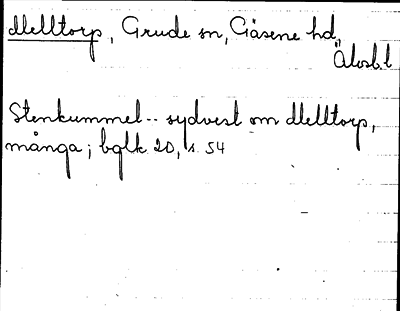 Melltorp, Grude sn, Gäsene hd,
Älvsb.l
Stenkummel -- sydvest om Melltorp,
många; bglk 20, s. 54